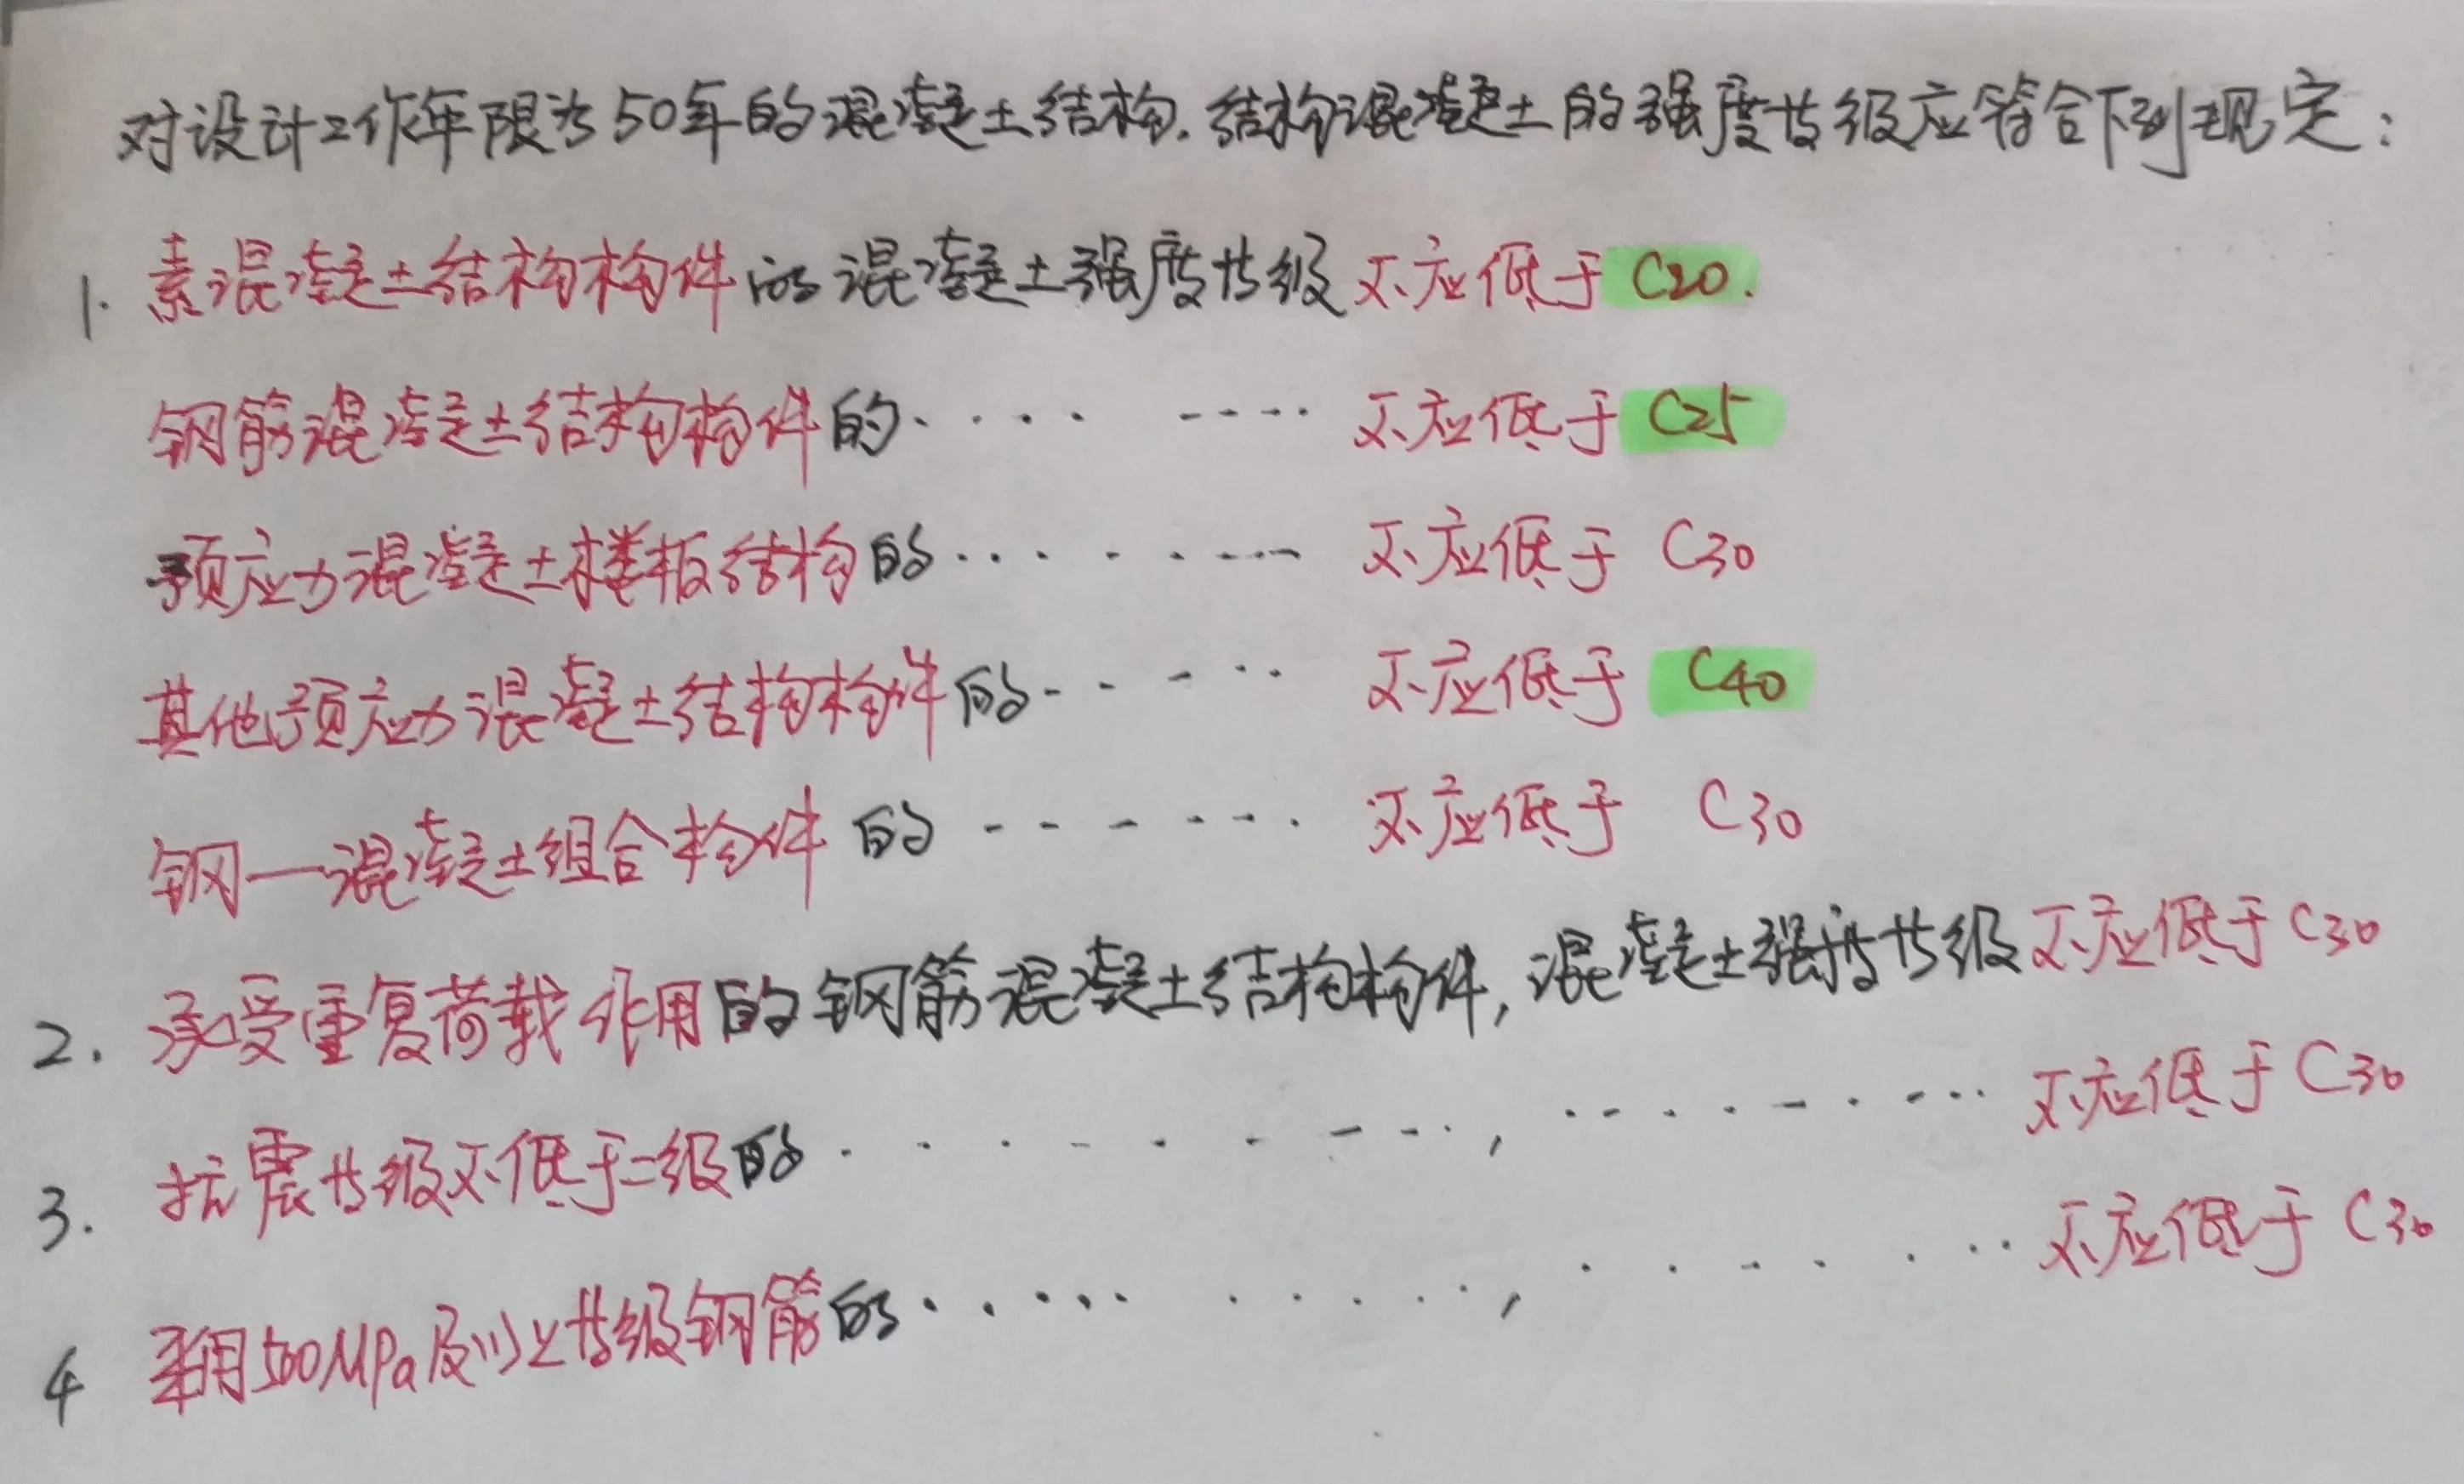 对设计工作年限为50年的混凝土结构.结构混凝土的强度等级应符合下列规定:
1. 素混凝土结构构件的混凝土强度等级不应低于C20.
钢筋混凝土结构构件的········不应低于C25
预应力混凝土楼板结构的········不应低于 C30
其他预应力混凝土结构构件的······不应低于 C40
钢—混凝土组合构件的·······不应低于 C30
2. 承受重复荷载作用的钢筋混凝土结构构件,混凝土强度等级不应低于C30
3. 抗震等级不低于二级的·········,·········不应低于C30
4 采用500MPa及以上等级钢筋的···········,········不应低于C30